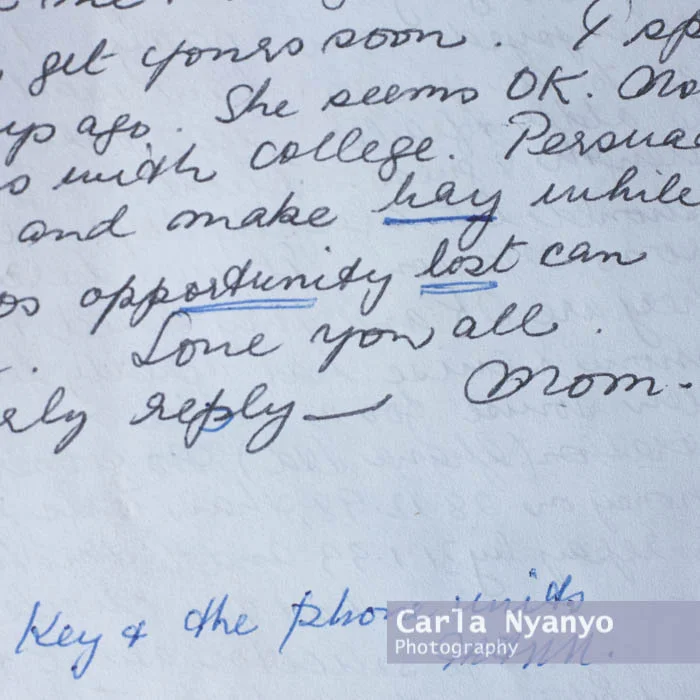 get yours soon. I sp
ago. She seems OK. No
with college. Persua
and make hay while
opportunity lost can
Love you all.
rly reply — Mom.
Key & the phone units
Carla Nyanyo
Photography